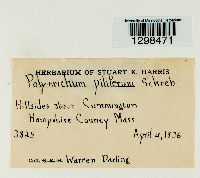 1298471
HERBARIUM OF STUART K. HARRIS
Polytrichum piliferum Schreb
Hillsides about Cummington
Hampshire County Mass
3825 April 4, 1936
Warren Darling